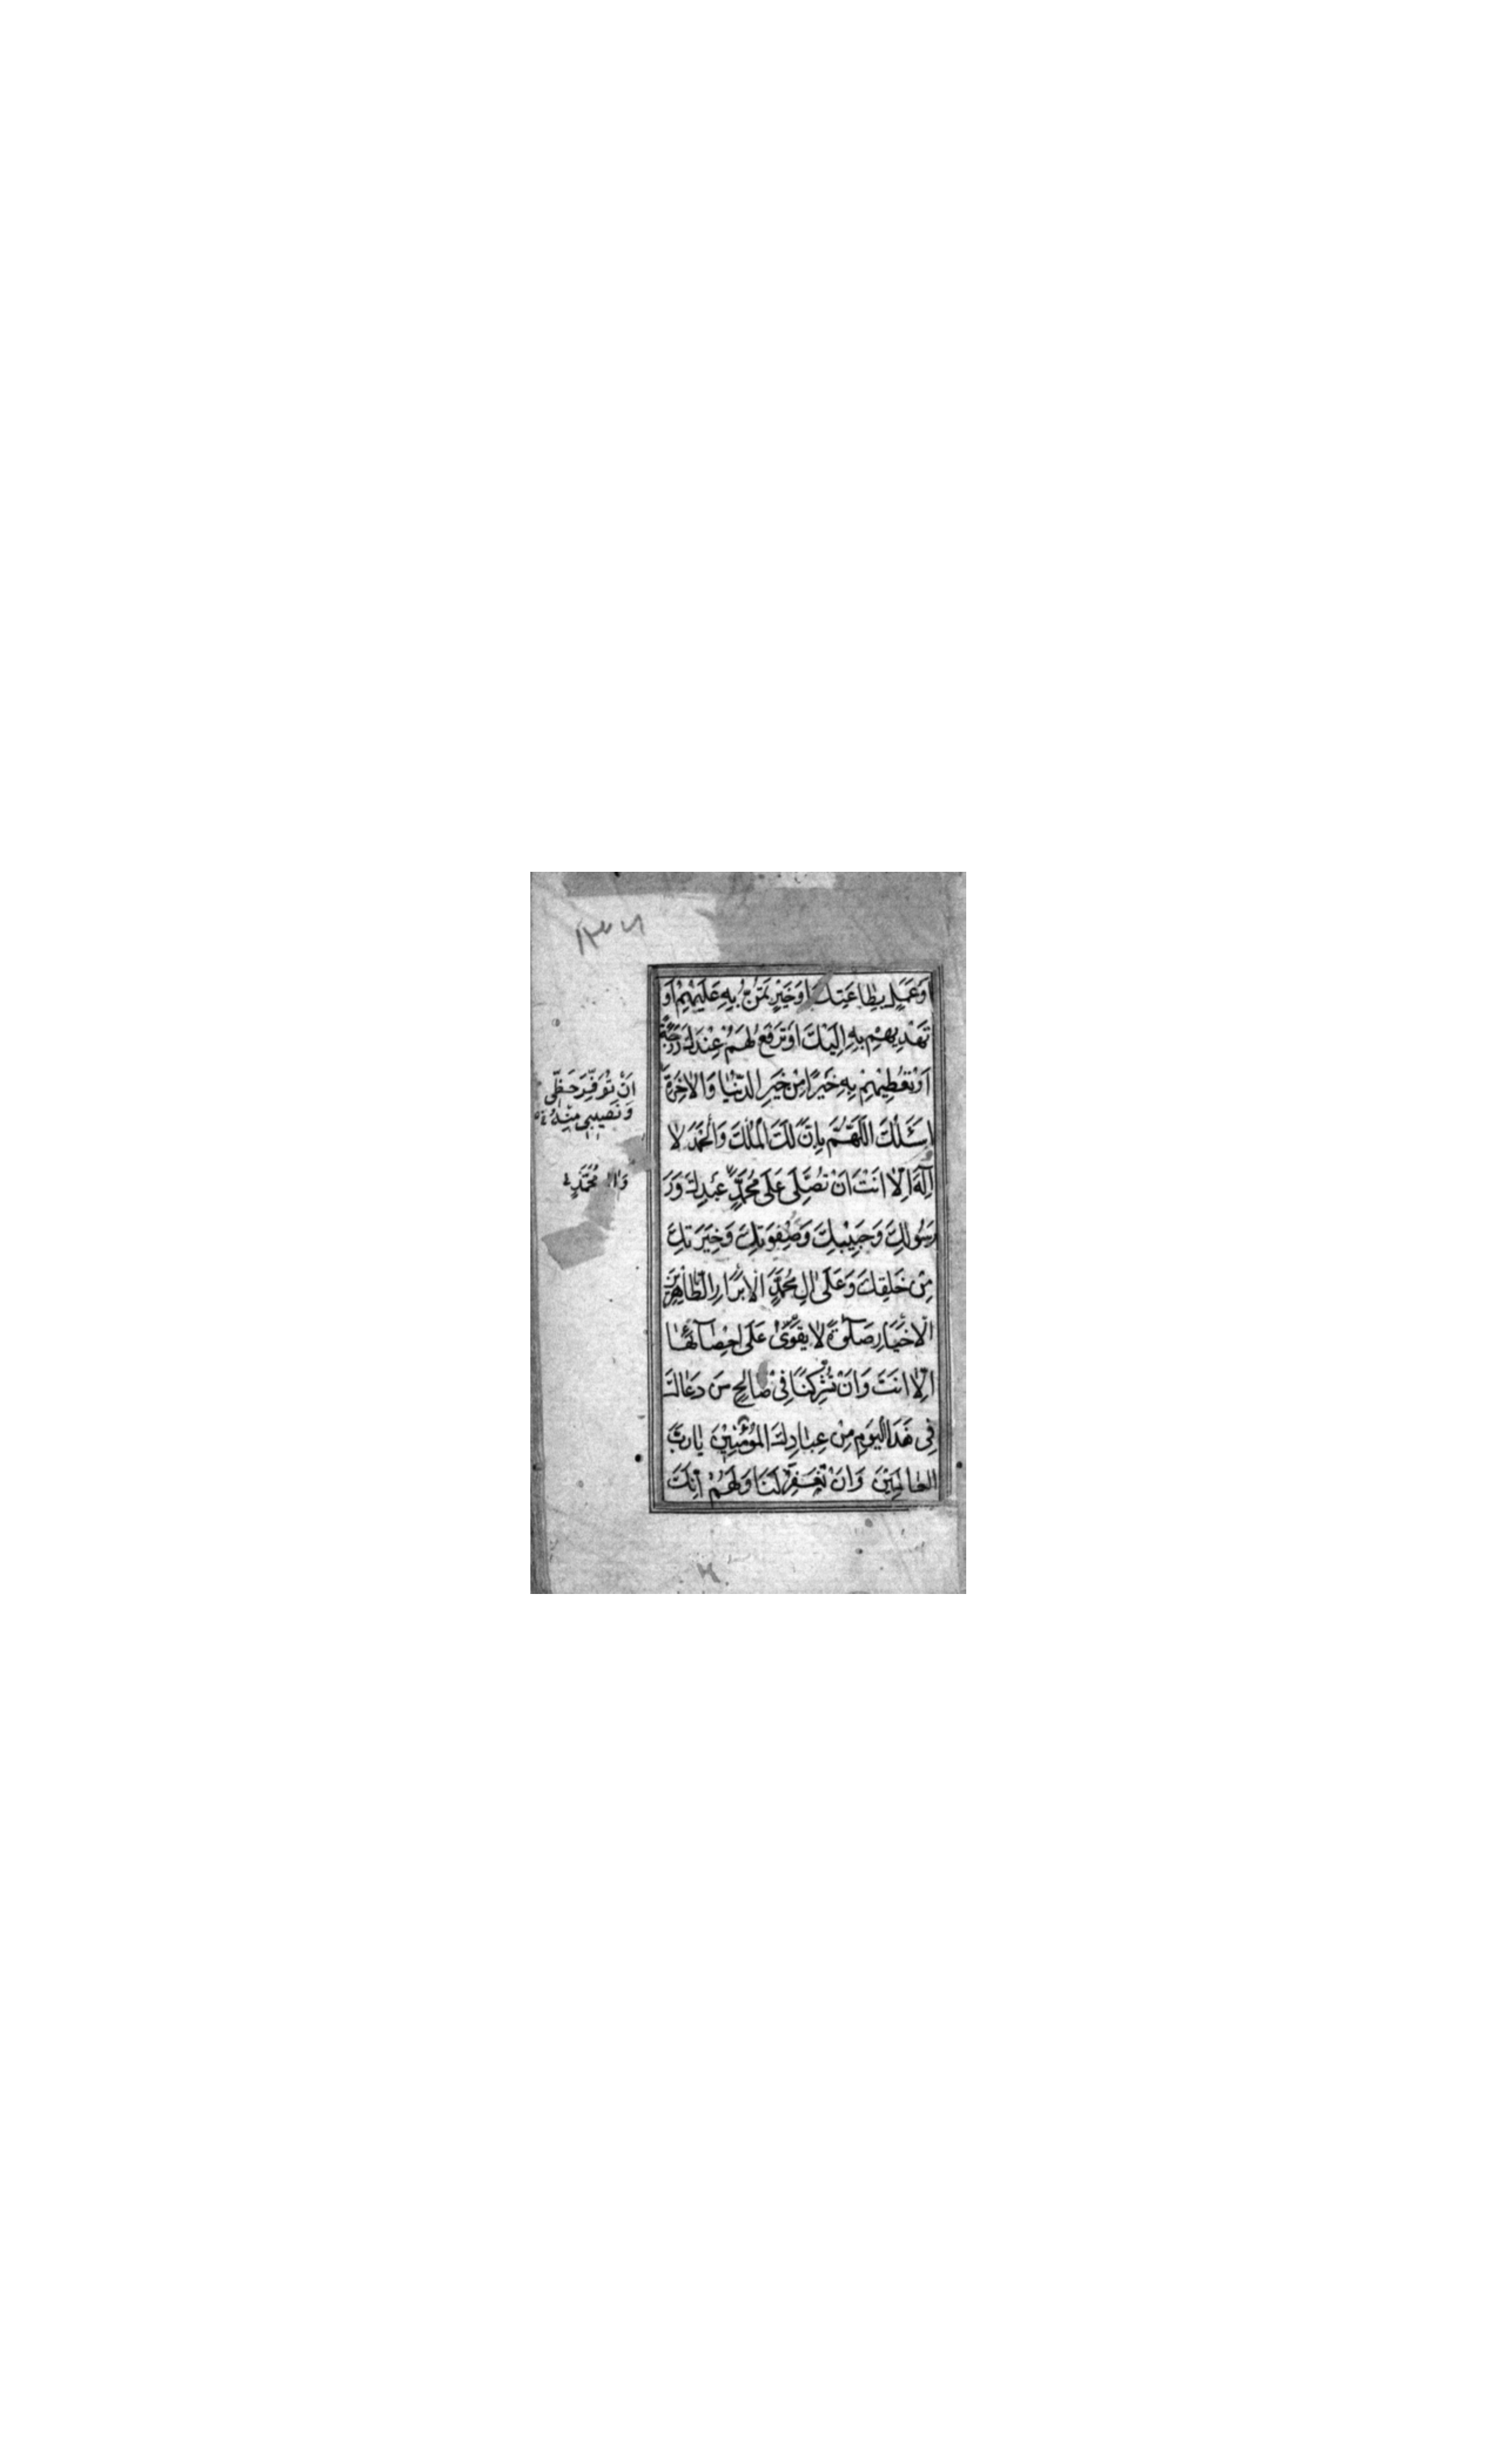 اَوْ عَمَلٍ بِطَاعَتِكَ اَوْ خَيْرٍ تَمُنُّ بِهِ عَلَيْهِمْ اَوْ
تَهْدِيهِمْ بِهِ اِلَيْكَ اَوْ تَرْفَعُ لَهُمْ عِنْدَكَ دَرَجَةً
اَوْ تُعْطِيهِمْ بِهِ خَيْرًا مِنْ خَيْرِ الدُّنْيَا وَالْاٰخِرَةِ
اَنْ تُوَفِّرَ حَظِّى
وَنَصِيبِى مِنْهُ
اَسْئَلُكَ اللّٰهُمَّ بِاَنَّ لَكَ الْمُلْكَ وَالْحَمْدَ لَا
اِلٰهَ اِلَّا اَنْتَ اَنْ تُصَلِّىَ عَلٰى مُحَمَّدٍ عَبْدِكَ وَرَ
وَاٰلِ مُحَمَّدٍ
رَسُولِكَ وَحَبِيبِكَ وَصِفْوَتِكَ وَخِيَرَتِكَ
مِنْ خَلْقِكَ وَعَلٰى اٰلِ مُحَمَّدٍ الْاَبْرَارِ الطَّاهِرِينَ
الْاَخْيَارِ صَلٰوةً لَا يَقْوٰى عَلٰى اِحْصَآئِهَا
اِلَّا اَنْتَ وَاَنْ تُشْرِكَنَا فِى صَالِحِ مَنْ دَعَاكَ
فِى هٰذَا الْيَوْمِ مِنْ عِبَادِكَ الْمُؤْمِنِينَ يَا رَبَّ
الْعَالَمِينَ وَاَنْ تَغْفِرَ لَنَا وَلَهُمْ اِنَّكَ